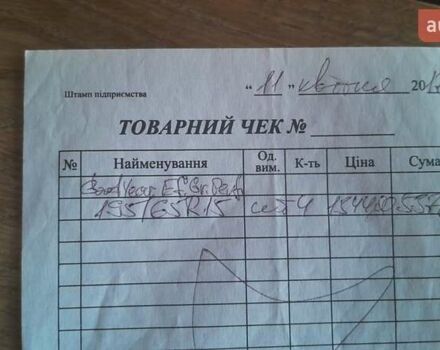 Штамп підприємства "11" квітня 201
ТОВАРНИЙ ЧЕК №
№ Найменування Од. вим. К-ть Ціна Сума
GoodYear Ef. Gr. Perf
195/65R15 шт 4